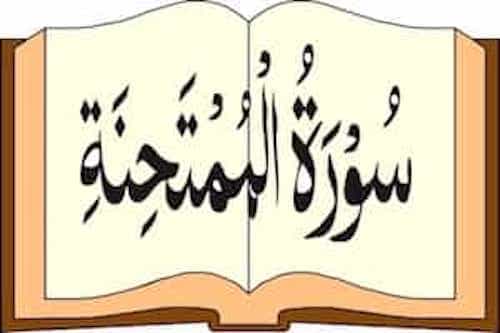 سُوْرَةُ الْمُمْتَحِنَةِ